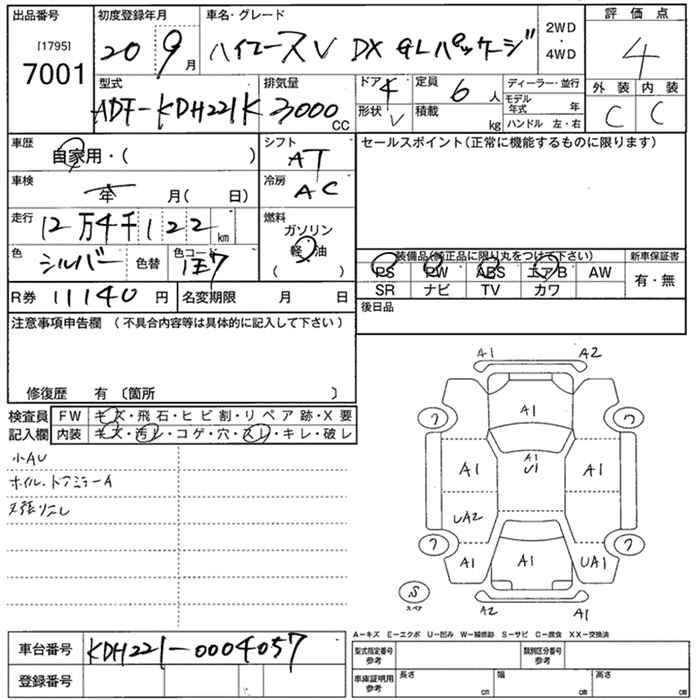 出品番号
[1795]
7001
初度登録年月
20 9月
車名・グレード
ハイエースV DX GLパッケージ
2WD
・
4WD
評価点
4
外装 内装
C C
型式
ADF-KDH221K
排気量
3000
CC
ドア
4
形状
V
定員
6人
積載
kg
ディーラー・並行
モデル年式 年
ハンドル 左・右
車歴
自家用・( )
シフト
AT
車検
年 月( 日)
冷房
AC
走行
12万4千122km
燃料
ガソリン
軽油
( )
色
シルバー
色替
色コード
1E7
R券 11140円
名変期限 月 日
セールスポイント(正常に機能するものに限ります)
装備品(純正品に限り丸をつけて下さい)
PS PW ABS エアB AW
SR ナビ TV カワ
新車保証書
有・無
後日品
注意事項申告欄 (不具合内容等は具体的に記入して下さい)
修復歴 有 〔箇所 〕
検査員
記入欄
FW キズ・飛石・ヒビ割・リペア跡・X要
内装 キズ・汚レ・コゲ・穴・スレ・キレ・破レ
小AU
ホイル、ドアミラーA
A1 A2
A1
A1
U1
A1 A1
UA2
A1 A1 UA1
ワ ワ
ワ ワ
S
スペア
A2 A1
A-キズ E-エクボ U-凹み W-補修跡 S-サビ C-腐食 XX-交換済
車台番号
KDH221-0004057
登録番号
型式指定番号
参考
類別区分番号
参考
車庫証明用
参考
長さ cm
幅 cm
高さ cm